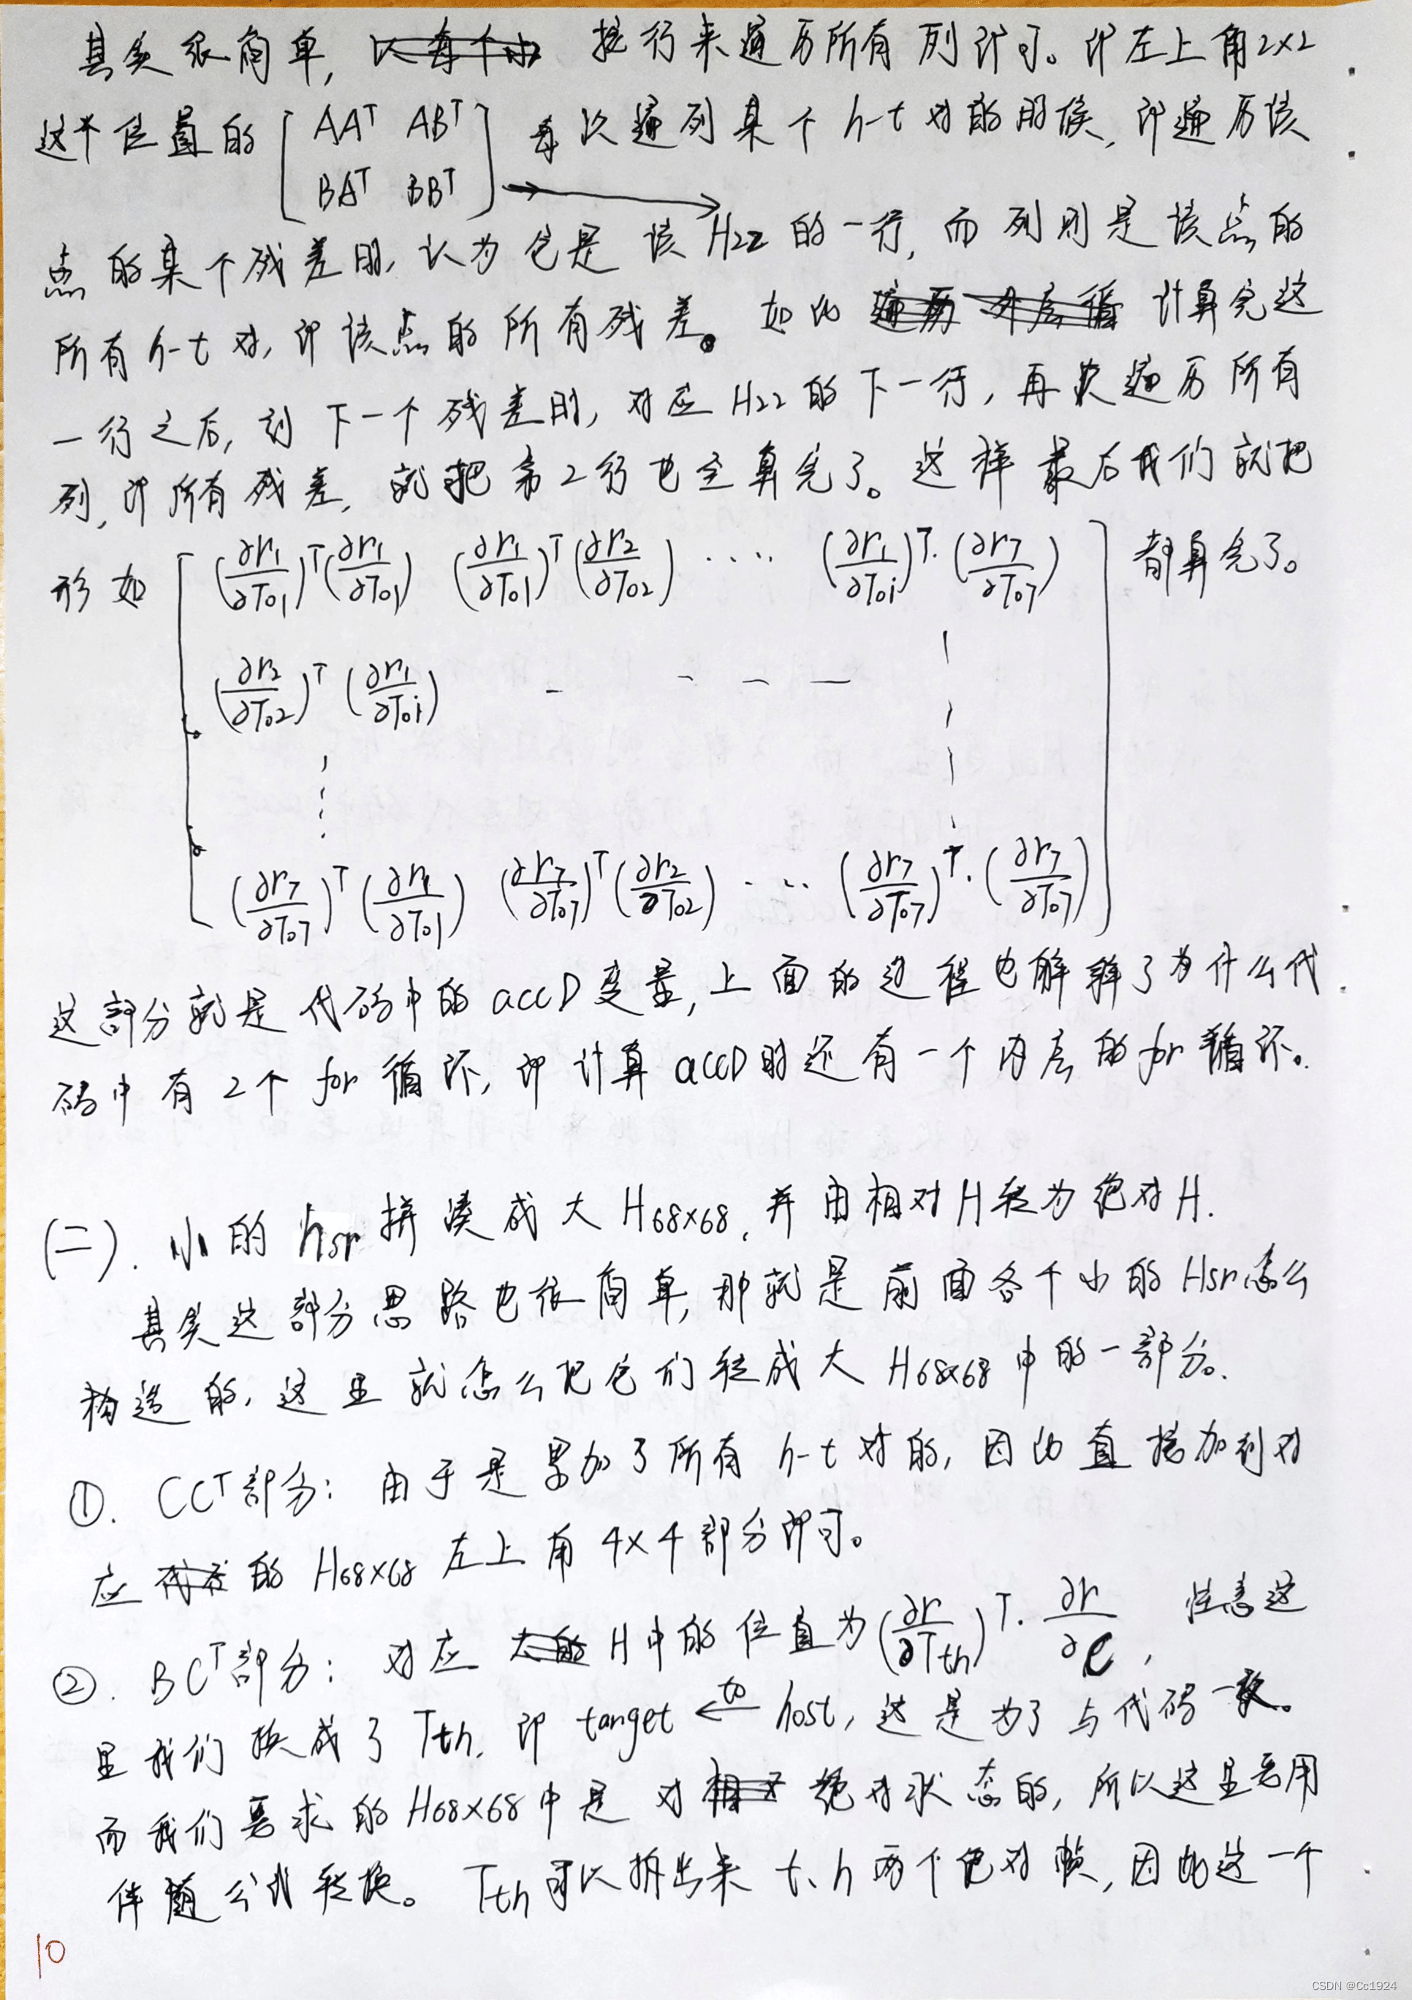 其实很简单, 按行来遍历所有列即可。即左上角2×2
这个位置的 [ AAᵀ ABᵀ ; BAᵀ BBᵀ ] 每次遍列某个 h-t 对的时候, 即遍历该
点的某个残差时, 认为它是该 H₂₂ 的一行, 而列则是该点的
所有 h-t 对, 即该点的所有残差。如此 计算完这
一行之后, 到下一个残差时, 对应 H₂₂ 的下一行, 再次遍历所有
列, 即所有残差, 就把第2行也全算完了。这样最后我们就把
形如 [ (∂r₁/∂T₀₁)ᵀ(∂r₁/∂T₀₁) (∂r₁/∂T₀₁)ᵀ(∂r₂/∂T₀₂) ···· (∂r₁/∂T₀ᵢ)ᵀ·(∂r₇/∂T₀₇) ] 都算完了。
(∂r₂/∂T₀₂)ᵀ (∂r₁/∂T₀ᵢ) - - - —
(∂r₇/∂T₀₇)ᵀ(∂r₁/∂T₀₁) (∂r₇/∂T₀₇)ᵀ(∂r₂/∂T₀₂) ···· (∂r₇/∂T₀₇)ᵀ·(∂r₇/∂T₀₇)
这部分就是代码中的 accD 变量, 上面的过程也解释了为什么代
码中有2个 for 循环, 即计算 accD 时还有一个内层的 for 循环。
(二). 小的 hsr 拼凑成大 H₆₈ₓ₆₈, 并由相对H转为绝对H.
其实这部分思路也很简单, 那就是前面各个小的 Hsr 怎么
构造的, 这里就怎么把它们转成大 H₆₈ₓ₆₈ 中的一部分。
①. CCᵀ部分: 由于是累加了所有 h-t 对的, 因此直接加到对
应 的 H₆₈ₓ₆₈ 左上角 4×4 部分即可。
②. BCᵀ部分: 对应 H中的位置为 (∂r/∂Tth)ᵀ·∂r/∂C, 注意这
里我们换成了 Tth, 即 target ←to host, 这是为了与代码一致。
而我们要求的 H₆₈ₓ₆₈ 中是对 绝对状态的, 所以这里要用
伴随公式转换。Tth可以拆出来 t、h 两个绝对帧, 因此这一个
10
CSDN @Cc1924